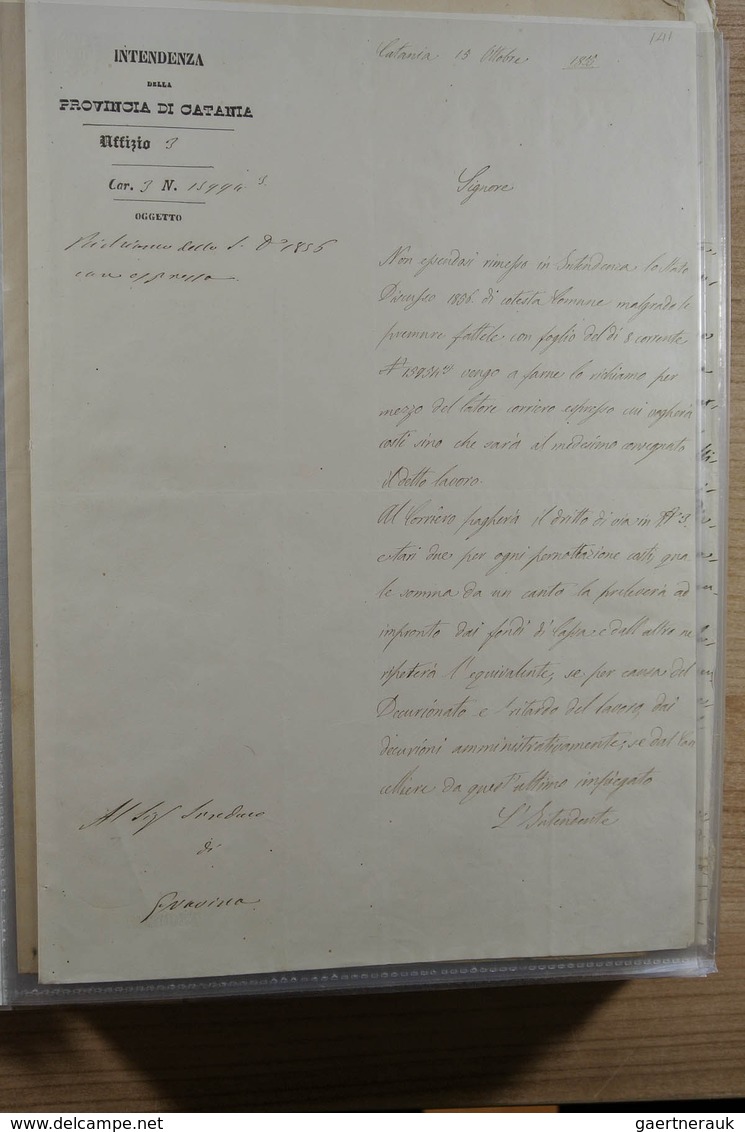 141
INTENDENZA
DELLA
PROVINCIA DI CATANIA
Uffizio 3
Car. 3 N. 15994
OGGETTO
Richiamo dello S. D.º 1856
con espresso
Catania 15 Ottobre
Signore
Non essendosi rimesso in Intendenza lo Stato
Discusso 1856. di cotesta Comune malgrado le
premure fattele con foglio del dì 8 corrente
vengo a farne lo richiamo per
mezzo del latore corriero espresso cui vagherà
costì sino che sarà al medesimo consegnato
il detto lavoro.
Al Corriero pagherà il dritto di via in
e tarì due per ogni pernottazione costì, qua
le somma da un canto la preleverà ad
impronto dai fondi di Cassa e dall'altro ne
ripeterà l'equivalente, se per causa del
Decurionato e 'l ritardo del lavoro, dai
decurioni amministrativamente; se dal Can
celliere da quest'ultimo impiegato
L'Intendente
Al Sig.r Sindaco
di
Gravina
gaertnerauk